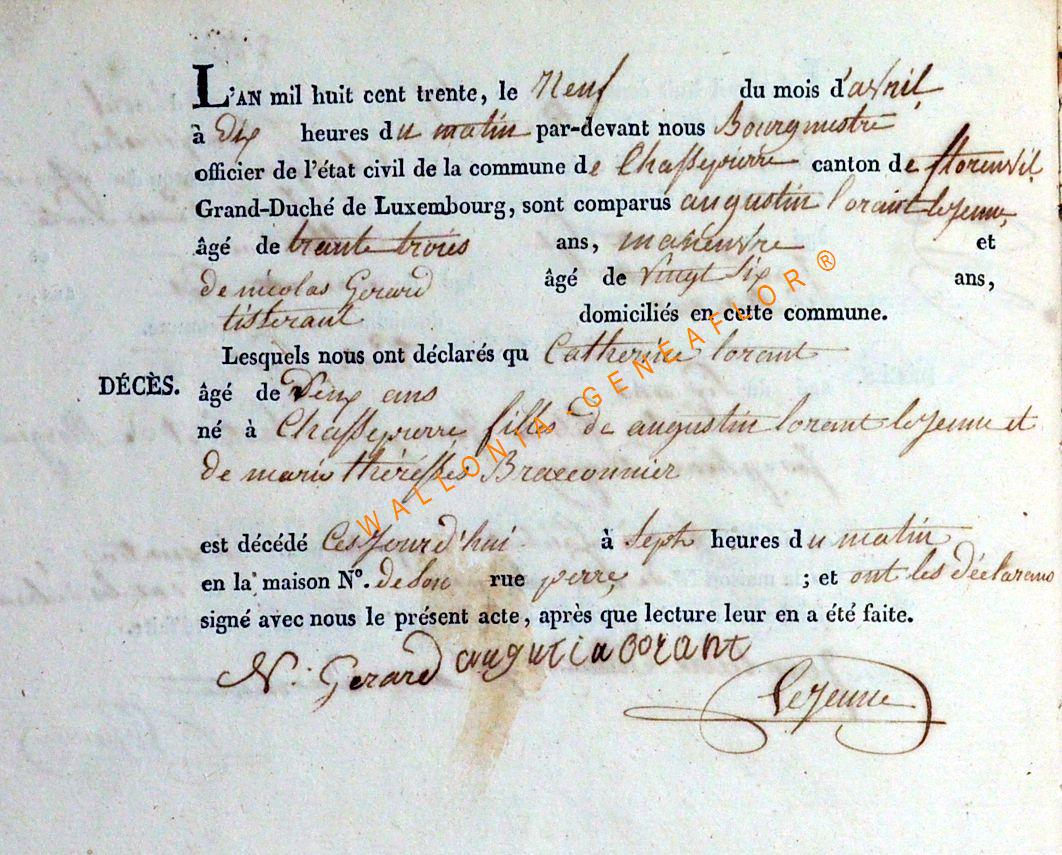 L'AN mil huit cent trente, le Neuf du mois d'avril
à Dix heures du matin par-devant nous Bourgmestre
officier de l'état civil de la commune de Chassepierre canton de florenvil
Grand-Duché de Luxembourg, sont comparus augustin lorant lejeune
âgé de trante troies ans, maneuvre et
de nicolas Gerard âgé de vingt six ans,
tisserant domiciliés en cette commune.
Lesquels nous ont déclarés qu Catherine lorant
DÉCÈS. âgé de Deux ans
né à Chassepierre filles de augustin lorant lejeune et
de marie thérésse Braconnier
est décédé Cesjourd'hui à Septh heures du matin
en la maison N°. de son rue perre ; et ont les déclarans
signé avec nous le présent acte, après que lecture leur en a été faite.
N. Gerard augustin lorant
Lejeune
WALLONIA-GENEAFLOR ®